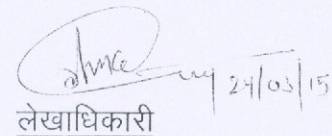 24/03/15
लेखाधिकारी